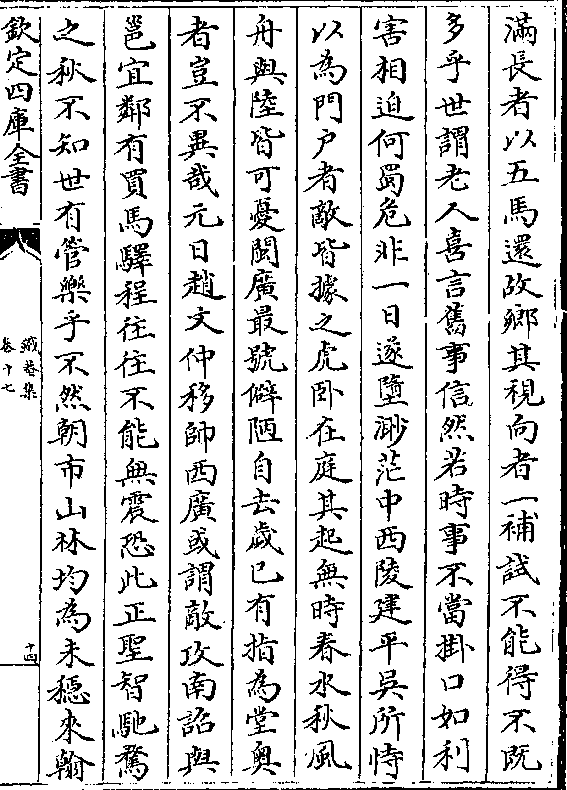 滿長者以五馬還故鄉其視向者一補試不能得不既
多乎世謂老人喜言舊事信然若時事不當掛口如利
害相迫何蜀危非一日遂墮渺茫中西陵建平吳所恃
以為門户者敵皆據之虎卧在庭其起無時春水秋風
舟與陸皆可憂閩廣最號僻陋自去歲已有指為堂奥
者豈不異哉元日趙文仲移師西廣或謂敵攻南詔與
邕宜鄰有買馬驛程往往不能無震恐此正聖智馳騖
之秋不知世有管樂乎不然朝市山林均為未穩來翰
欽定四庫全書
卷十七
十四